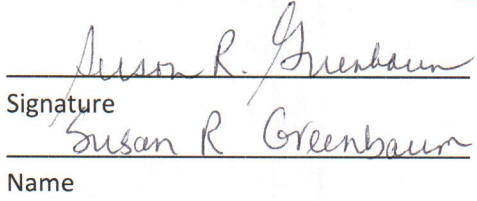 Susan R. Greenbaum
Signature
Susan R Greenbaum
Name